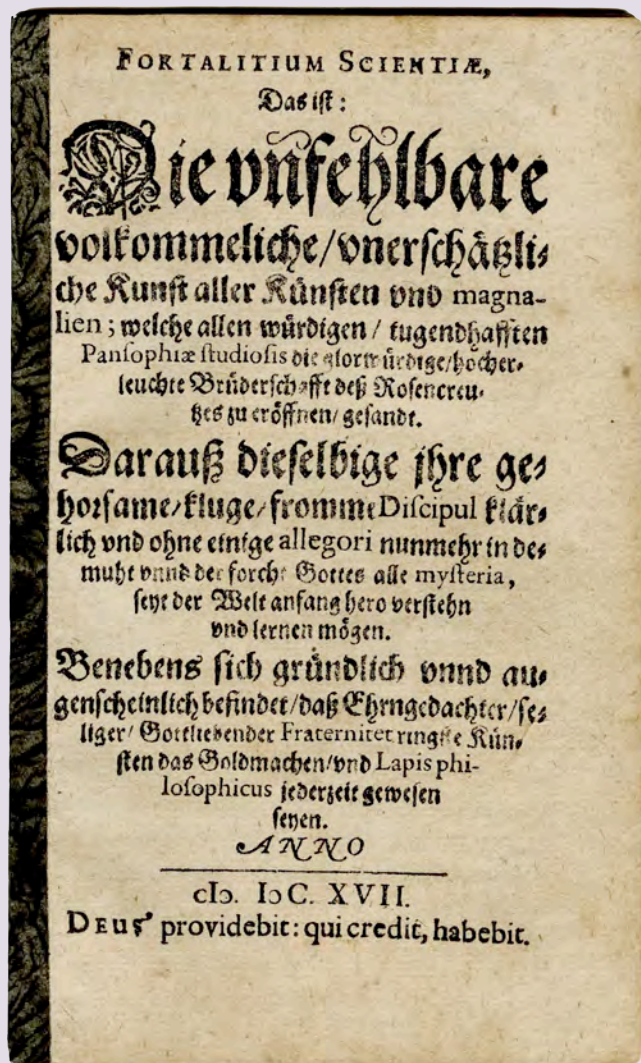 FORTALITIUM SCIENTIÆ,
Das ist:
Die vnfehlbare
volkommeliche/vnerschätzli⸗
che Kunst aller Künsten vnd magna-
lien; welche allen würdigen/ tugendhafften
Pansophiæ studiosis die glorwürdige/hocher⸗
leuchte Brüderschafft deß Rosencreu⸗
tzes zu eröffnen/ gesandt.
Darauß dieselbige jhre ge⸗
horsame/kluge/fromme Discipul klär⸗
lich vnd ohne einige allegori nunmehr in de⸗
muht vnnd der forcht Gottes alle mysteria,
seyt der Welt anfang hero verstehn
vnd lernen mögen.
Benebens sich gründlich vnnd au⸗
genscheinlich befindet/daß Ehrngedachter/se⸗
liger/ Gottliebender Fraternitet ringste Kün⸗
sten das Goldmachen/vnd Lapis phi-
losophicus jederzeit gewesen
seyen.
ANNO
cIɔ. Iɔ C. XVII.
DEUS providebit: qui credit, habebit.